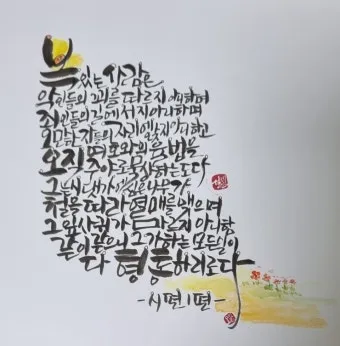 복있는 사람은
악인들의 꾀를 따르지 아니하며
죄인들의 길에 서지 아니하며
오만한 자들의 자리에 앉지 아니하고
오직 여호와의 율법을
주야로 묵상하는도다
그는 시냇가에 심은 나무가
철을 따라 열매를 맺으며
그 잎사귀가 마르지 아니함
같으니 그가 하는 모든 일이
다 형통하리로다
-시편1편-